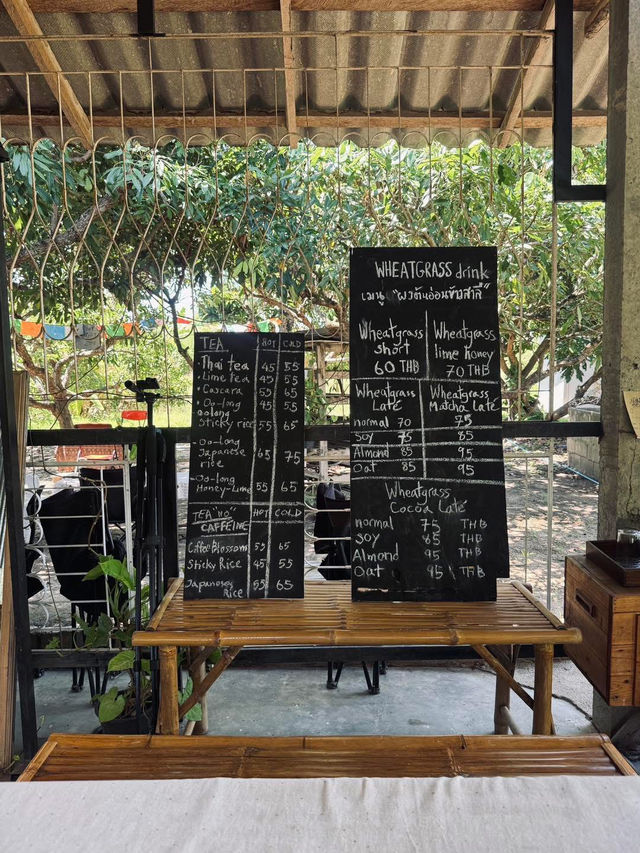 TEA HOT COLD
Thai tea 45 55
Lime tea 45 55
Cascara 55 65
Oo-long 45 55
oolong
Sticky rice 55 65
Oo-long
Japanese 65 75
rice
Oo-long
Honey-Lime 55 65
TEA "no" HOT COLD
CAFFEINE
Coffee Blossom 55 65
Sticky Rice 45 55
Japanese 55 65
Rice
WHEATGRASS drink
เมนู "ผงต้นอ่อนข้าวสาลี"
Wheatgrass
short
60 THB
Wheatgrass
lime honey
70 THB
Wheatgrass
Late
Wheatgrass
Matcha Late
normal 70 75
Soy 75 85
Almond 85 95
Oat 85 95
Wheatgrass
Cocoa Late
normal 75 THB
Soy 85 THB
Almond 95 THB
Oat 95 THB